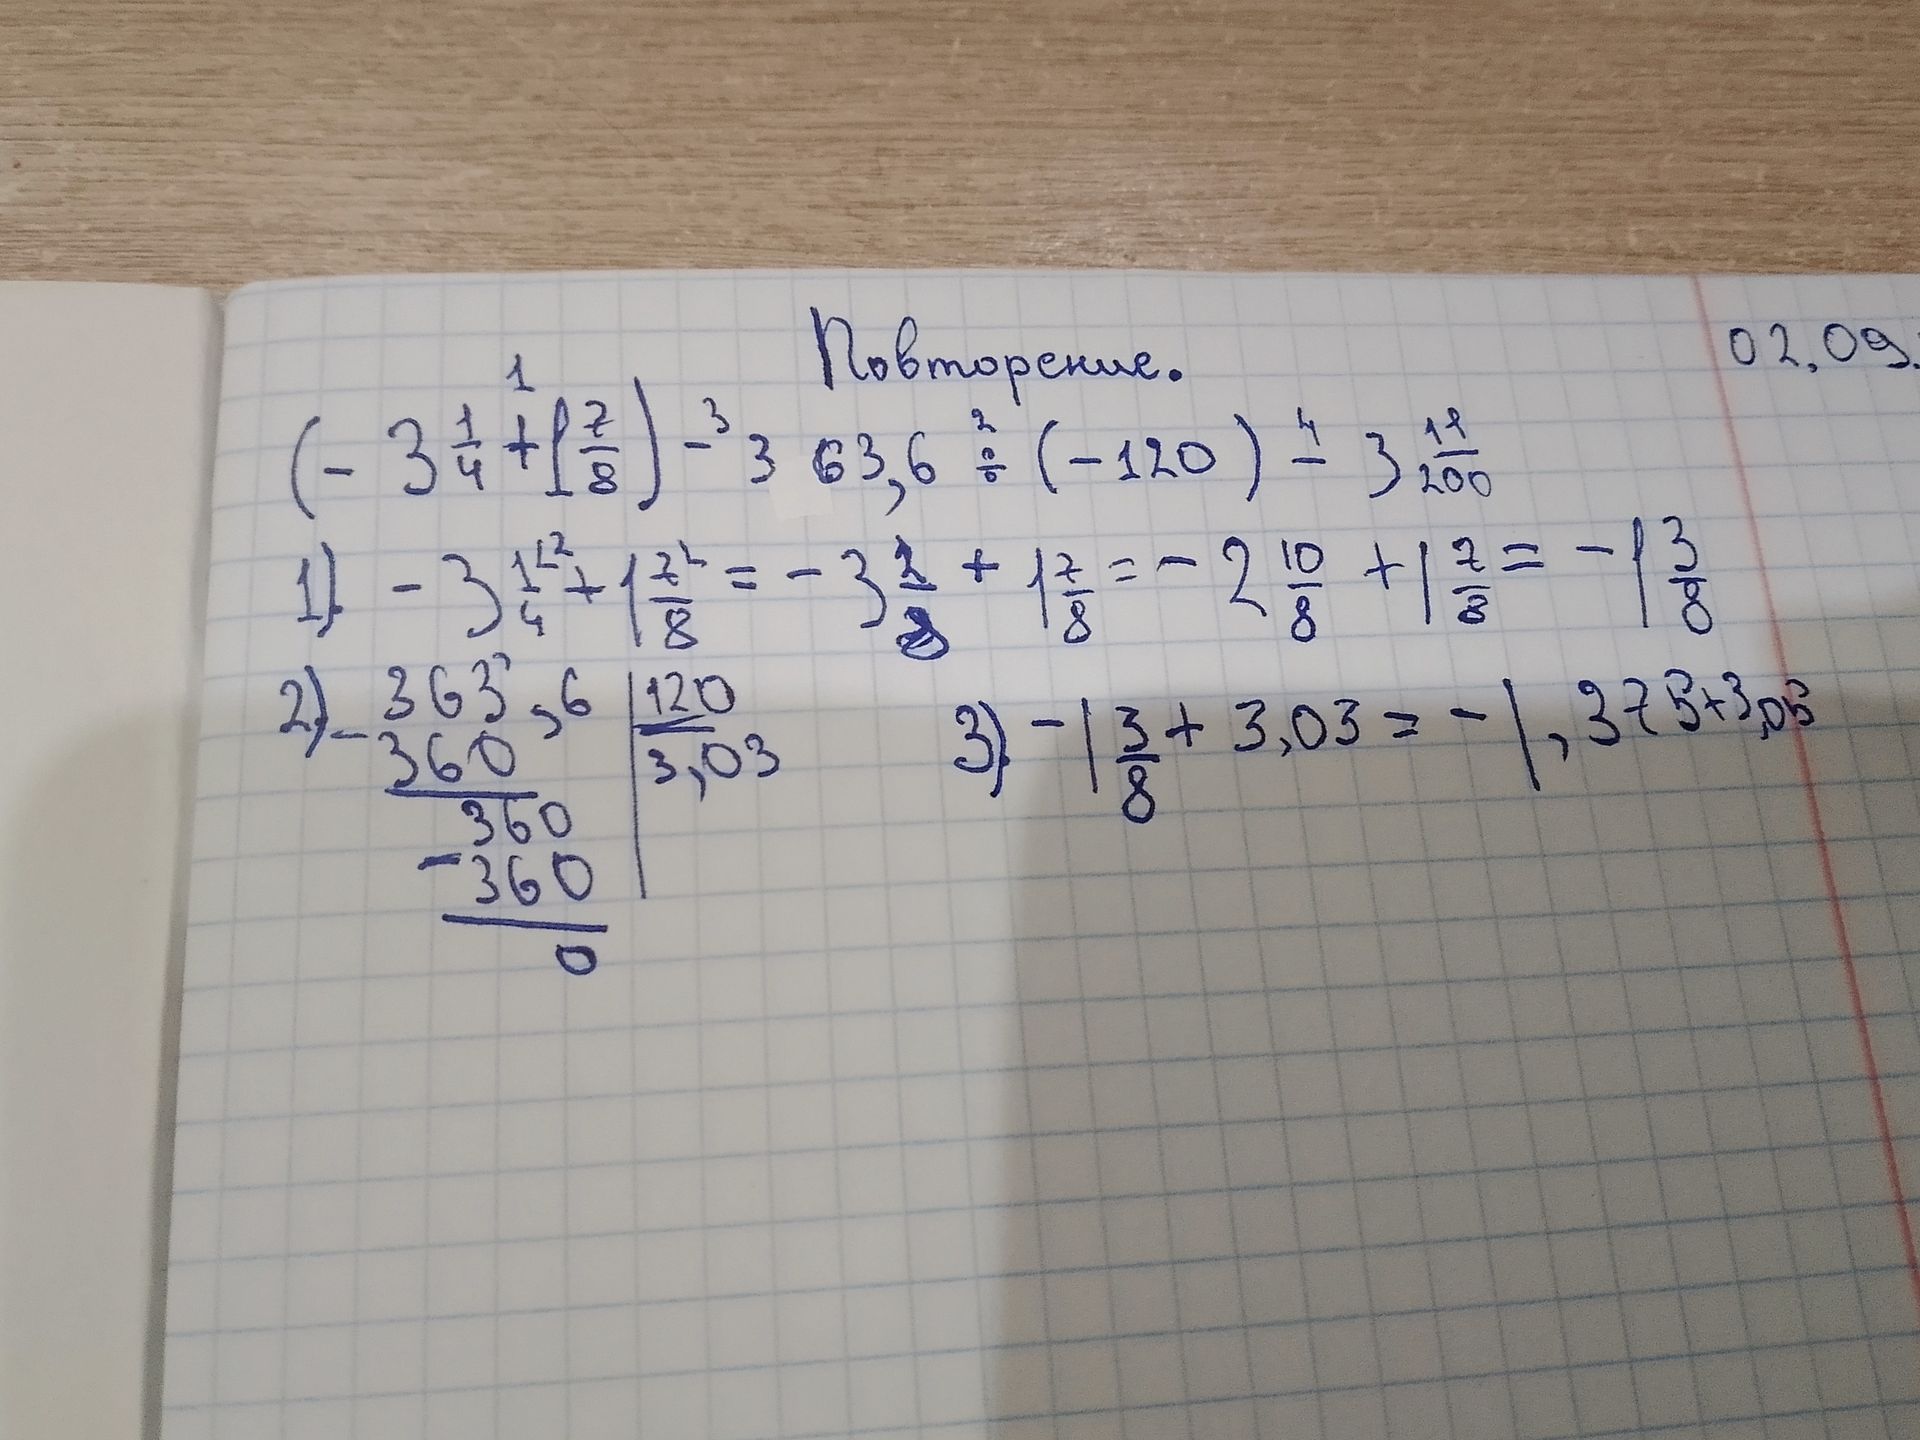 Повторение. 02.09.
(- 3 1/4 + 1 7/8) - 363,6 ÷ (-120) - 3 11/200
1) - 3 1/4 + 1 7/8 = - 3 2/8 + 1 7/8 = - 2 10/8 + 1 7/8 = - 1 3/8
2) 363,6 | 120
- 360 | 3,03
360
- 360
0
3) - 1 3/8 + 3,03 = - 1,375 + 3,03